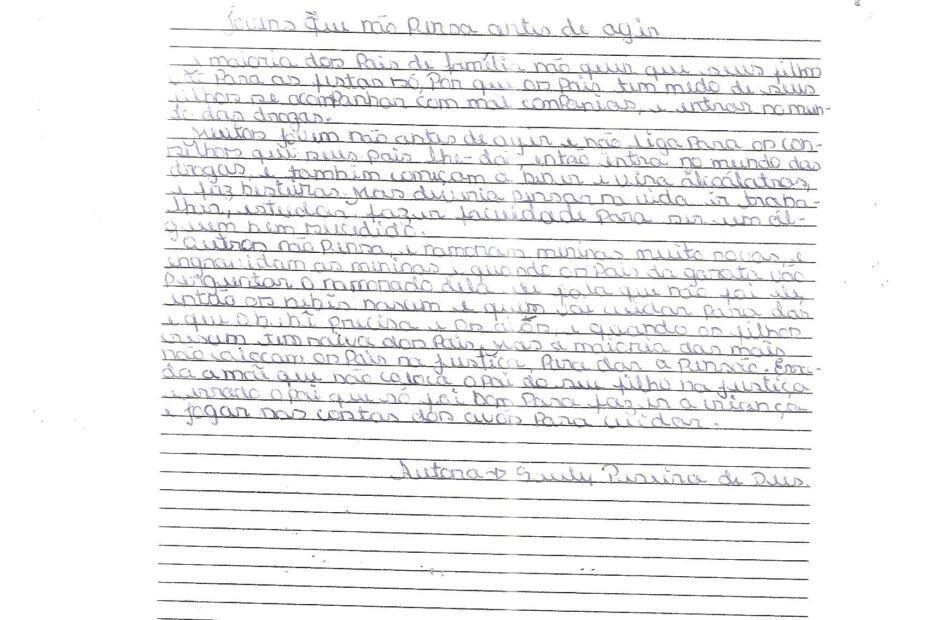 Jovens que não Pensa antes de agir
a maioria dos Pais de família não quer que seus filho
Para as festas só, Por que os Pais tem medo de seus
filhos se acompanhar com mal companias, e entrar no mun-
do das drogas.
Muitos jovem não antes de agir e não liga Para os con-
selhos que seus pais lhe-da então intra no mundo das
drogas, e também começam a beber e vira alcoólatras,
e faz besteiras. Mas deveria pensar na vida ir traba-
lhar, estudar fazer faculdade para ser um al-
guem bem sucedido.
Outros não Pensa, e namoram meninas muito novas, e
engravidam as meninas e quando os Pais da garota vão
Perguntar o namorado dela ele fala que não foi ele,
então os bebês nasem e quem vai cuidar Para das
e que o bebê precisa e os avós, e quando os filhos
cresem tem raiva dos Pais, mas a maioria das mais
não os Pais na justiça, Para dar a Pensão. Erra-
da a mãe que não coloca o pai do seu filho na justiça
e errado o pai que só foi bom Para fazer a criança
e jogar nas costas dos avós Para cuidar.
Autora Pereira de Deus.